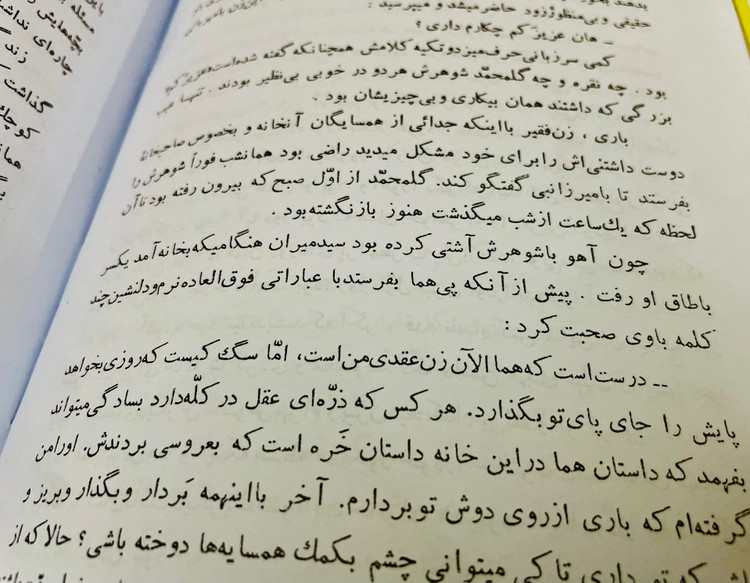 بدهند بخور
حقیقی و بی‌منظور زود حاضر میشد و میپرسید :
ــ هان عزیز کم چکارم داری ؟
کمی سر زبانی حرف میزد و تکیه کلامش همچنانکه گفته شده است «عزیز کم»
بود . چه نقره و چه گلمحمّد شوهرش هر دو در خوبی بی‌نظیر بودند . تنها عیب
بزرگی که داشتند همان بیکاری و بی‌چیزیشان بود .
باری ، زن فقیر با اینکه جدائی از همسایگان آنخانه و بخصوص صاحبخانهٔ
دوست داشتنی‌اش را برای خود مشکل میدید راضی بود همانشب فوراً شوهرش را
بفرستد تا با میرزانبی گفتگو کند. گلمحمّد از اوّل صبح که بیرون رفته بود تا آن
لحظه که یك ساعت از شب میگذشت هنوز باز نگشته بود .
چون آهو با شوهرش آشتی کرده بود سیدمیران هنگامیکه بخانه آمد یکسر
باطاق او رفت . پیش از آنکه پی هما بفرستد با عباراتی فوق‌العاده نرم و دلنشین چند
کلمه باوی صحبت کرد :
ــ درست است که هما الآن زن عقدی من است، امّا سگ کیست که روزی بخواهد
پایش را جای پای تو بگذارد. هر کس که ذرّه‌ای عقل در کلّه دارد بسادگی میتواند
بفهمد که داستان هما در این خانه داستان خَره است که بعروسی بردندش. او را من
گرفته‌ام که باری از روی دوش تو بردارم. آخر با اینهمه بَردار و بگذار و بریز و
که تو داری تا کی میتوانی چشم بکمك همسایه‌ها دوخته باشی؟ حالا که از
مسئله
بچه‌هایش
چاره‌ای نداشت
زندگ
گذاشت
کوچك
همان